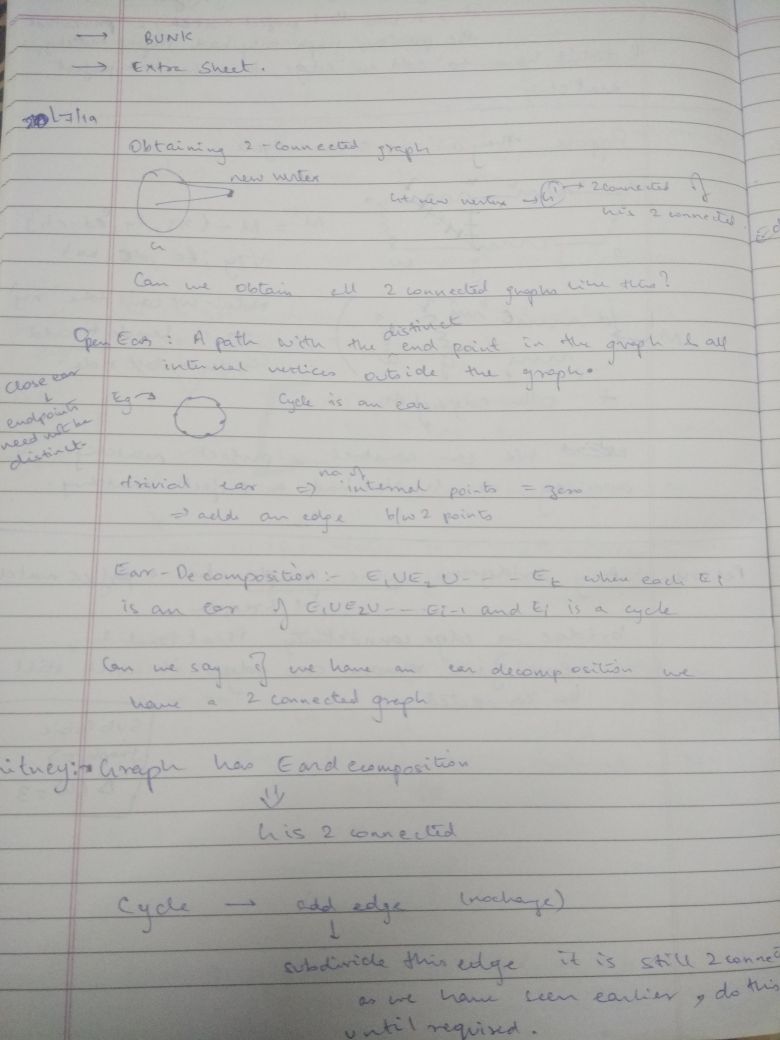 → BUNK
→ Extra Sheet.
20/7/19
Obtaining 2-connected graph
new vertex
G
G + new vertex → G' → 2 connected if
G is 2 connected.
Can we obtain all 2 connected graphs like this?
Open Ear : A path with the distinct end point in the graph & all
internal vertices outside the graph.
Close ear
↓
endpoints
need not be
distinct.
Eg → Cycle is an ear
trivial ear ⇒ no of internal points = zero
⇒ adds an edge b/w 2 points
Ear-Decomposition :- E1 U E2 U - - - Ek when each Ei
is an ear of E1 U E2 U -- Ei-1 and E1 is a cycle
Can we say if we have an ear decomposition we
have a 2 connected graph
hitney :- Graph has Ear decomposition
⇓
G is 2 connected
Cycle → add edge (nochange)
↓
subdivide this edge it is still 2 connec
as we have seen earlier, do this
until required.